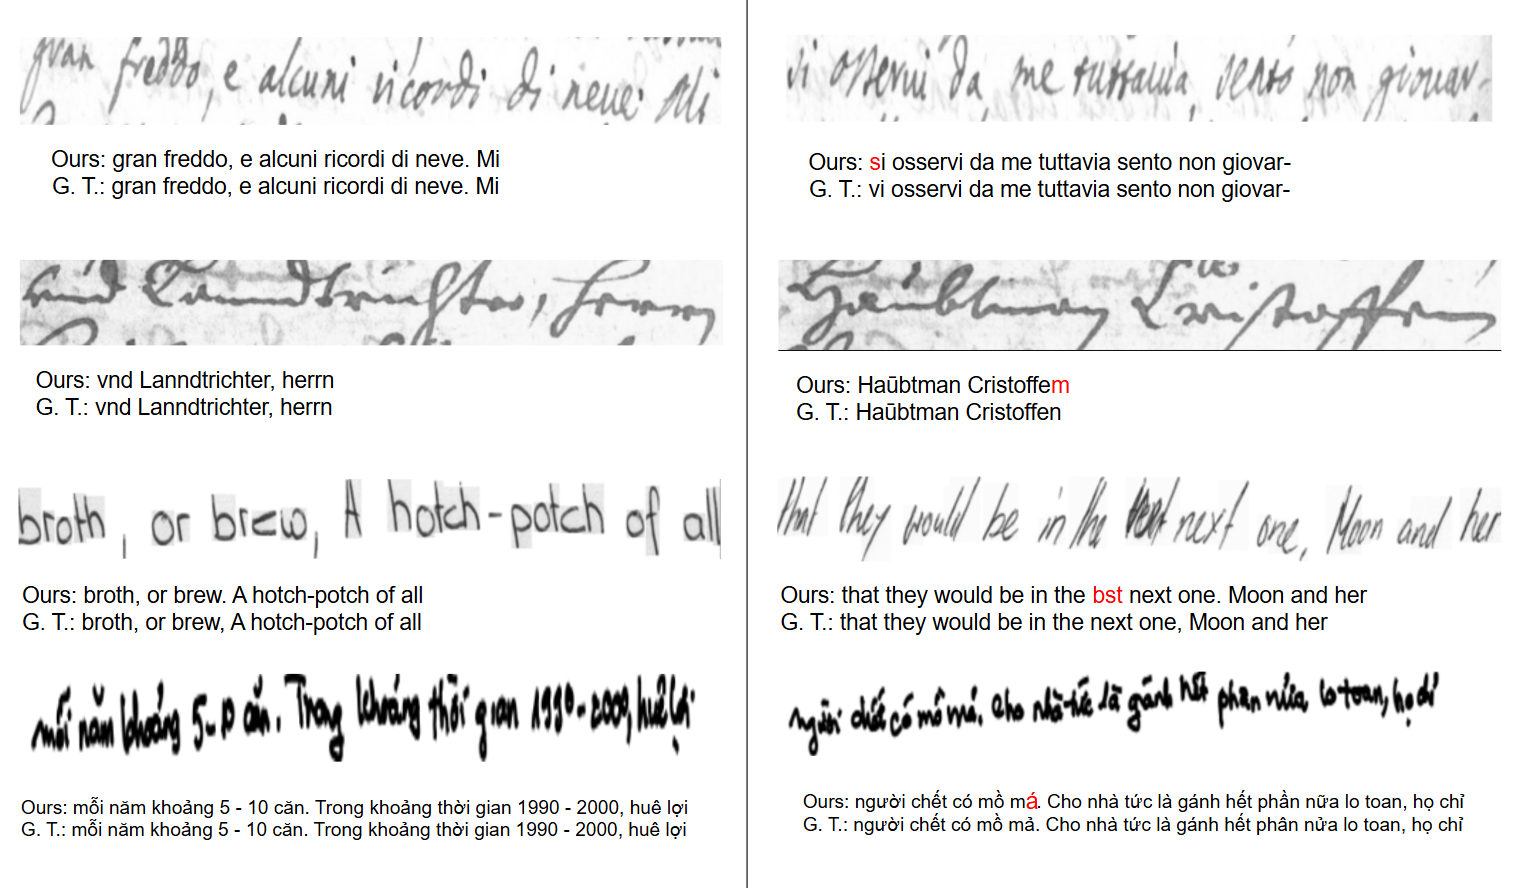 gran freddo, e alcuni ricordi di neve. Mi
Ours: gran freddo, e alcuni ricordi di neve. Mi
G. T.: gran freddo, e alcuni ricordi di neve. Mi
vnd Lanndtrichter, herrn
Ours: vnd Lanndtrichter, herrn
G. T.: vnd Lanndtrichter, herrn
broth, or brew, A hotch-potch of all
Ours: broth, or brew. A hotch-potch of all
G. T.: broth, or brew, A hotch-potch of all
mỗi năm khoảng 5-10 căn. Trong khoảng thời gian 1990-2000, huê lợi
Ours: mỗi năm khoảng 5 - 10 căn. Trong khoảng thời gian 1990 - 2000, huê lợi
G. T.: mỗi năm khoảng 5 - 10 căn. Trong khoảng thời gian 1990 - 2000, huê lợi
vi osservi da me tuttavia sento non giovar-
Ours: si osservi da me tuttavia sento non giovar-
G. T.: vi osservi da me tuttavia sento non giovar-
Haūbtman Cristoffen
Ours: Haūbtman Cristoffem
G. T.: Haūbtman Cristoffen
that they would be in the next one, Moon and her
Ours: that they would be in the bst next one. Moon and her
G. T.: that they would be in the next one, Moon and her
người chết có mồ mả. Cho nhà tức là gánh hết phân nửa lo toan, họ chỉ
Ours: người chết có mồ má. Cho nhà tức là gánh hết phần nữa lo toan, họ chỉ
G. T.: người chết có mồ mả. Cho nhà tức là gánh hết phân nửa lo toan, họ chỉ